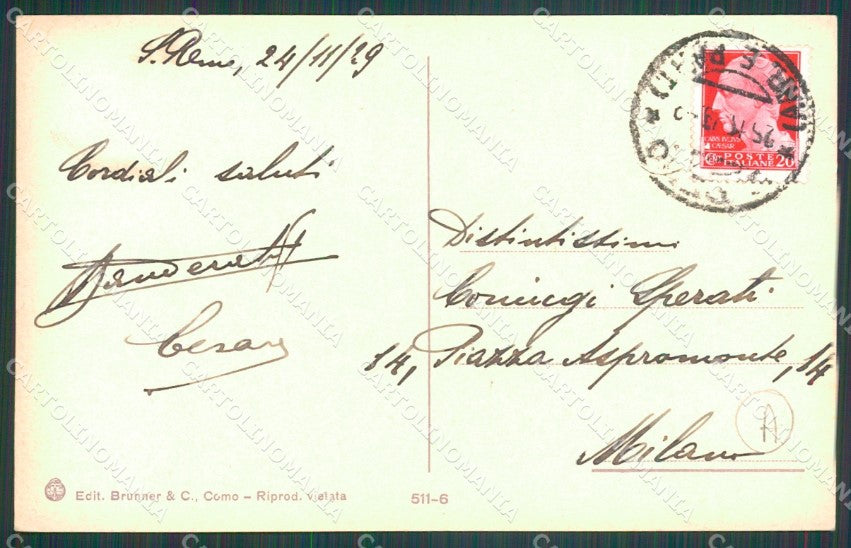 S. Remo, 24/11/29
Cordiali saluti
Cesare
CAIVS IVLIVS
CAESAR
POSTE
ITALIANE 20
Distintissimi
Coniugi Sperati
14, Piazza Aspromonte, 14
Milano
A
Edit. Brunner & C., Como – Riprod. vietata
511-6
CARTOLINOMANIA